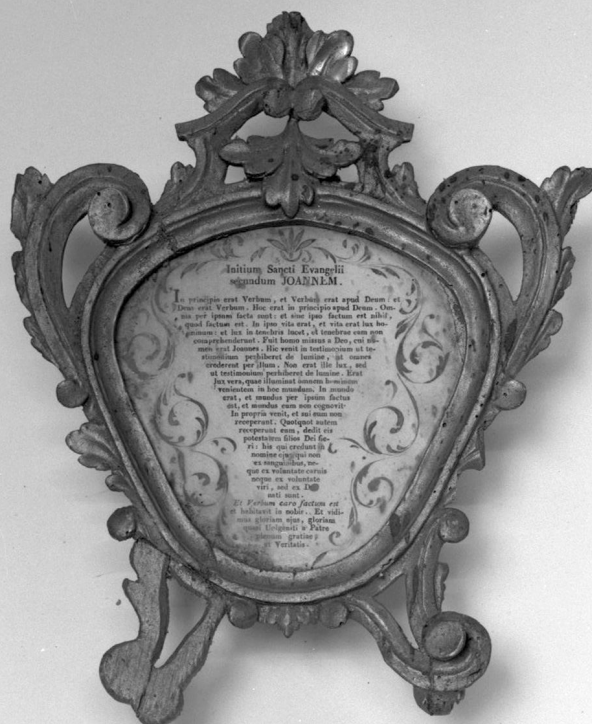 Initium Sancti Evangelii
secundum JOANNEM.
In principio erat Verbum, et Verbum erat apud Deum: et
Deus erat Verbum. Hoc erat in principio apud Deum. Om-
nia per ipsum facta sunt: et sine ipso factum est nihil,
quod factum est. In ipso vita erat, et vita erat lux ho-
minum: et lux in tenebris lucet, et tenebrae eam non
comprehenderunt. Fuit homo missus a Deo, cui no-
men erat Joannes. Hic venit in testimonium ut te-
stimonium perhiberet de lumine, ut omnes
crederent per illum. Non erat ille lux, sed
ut testimonium perhiberet de lumine. Erat
lux vera, quae illuminat omnem hominem
venientem in hoc mundum. In mundo
erat, et mundus per ipsum factus
est, et mundus eum non cognovit.
In propria venit, et sui eum non
receperunt. Quotquot autem
receperunt eum, dedit eis
potestatem filios Dei fie-
ri: his qui credunt in
nomine ejus, qui non
ex sanguinibus, ne-
que ex voluntate carnis
neque ex voluntate
viri, sed ex
nati sunt.
Et Verbum caro factum est
et habitavit in nobis. Et vidi-
mus gloriam ejus, gloriam
quasi Unigeniti a Patre
plenum gratiae,
et Veritatis.